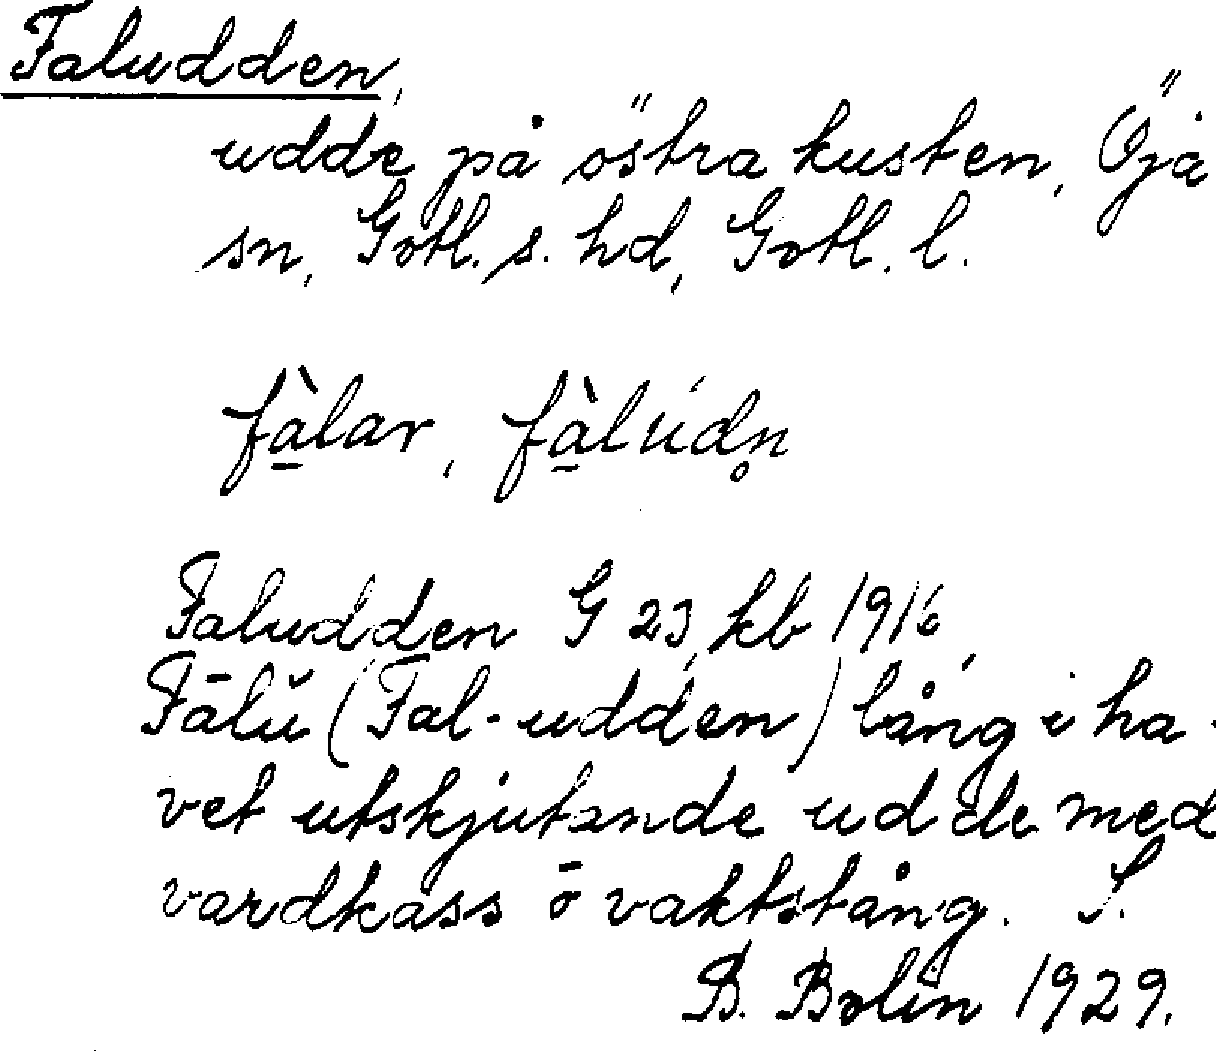 Faludden,
udde på östra kusten, Öja
sn, Gotl. s. hd, Gotl. l.
fàlar, fàlúdn̥
Faludden G 23, kb 1916,
Fālŭ (Fal-udden) lång i ha-
vet utskjutande udde med
vardkass ō vaktstång. S.
B. Bolin 1929.